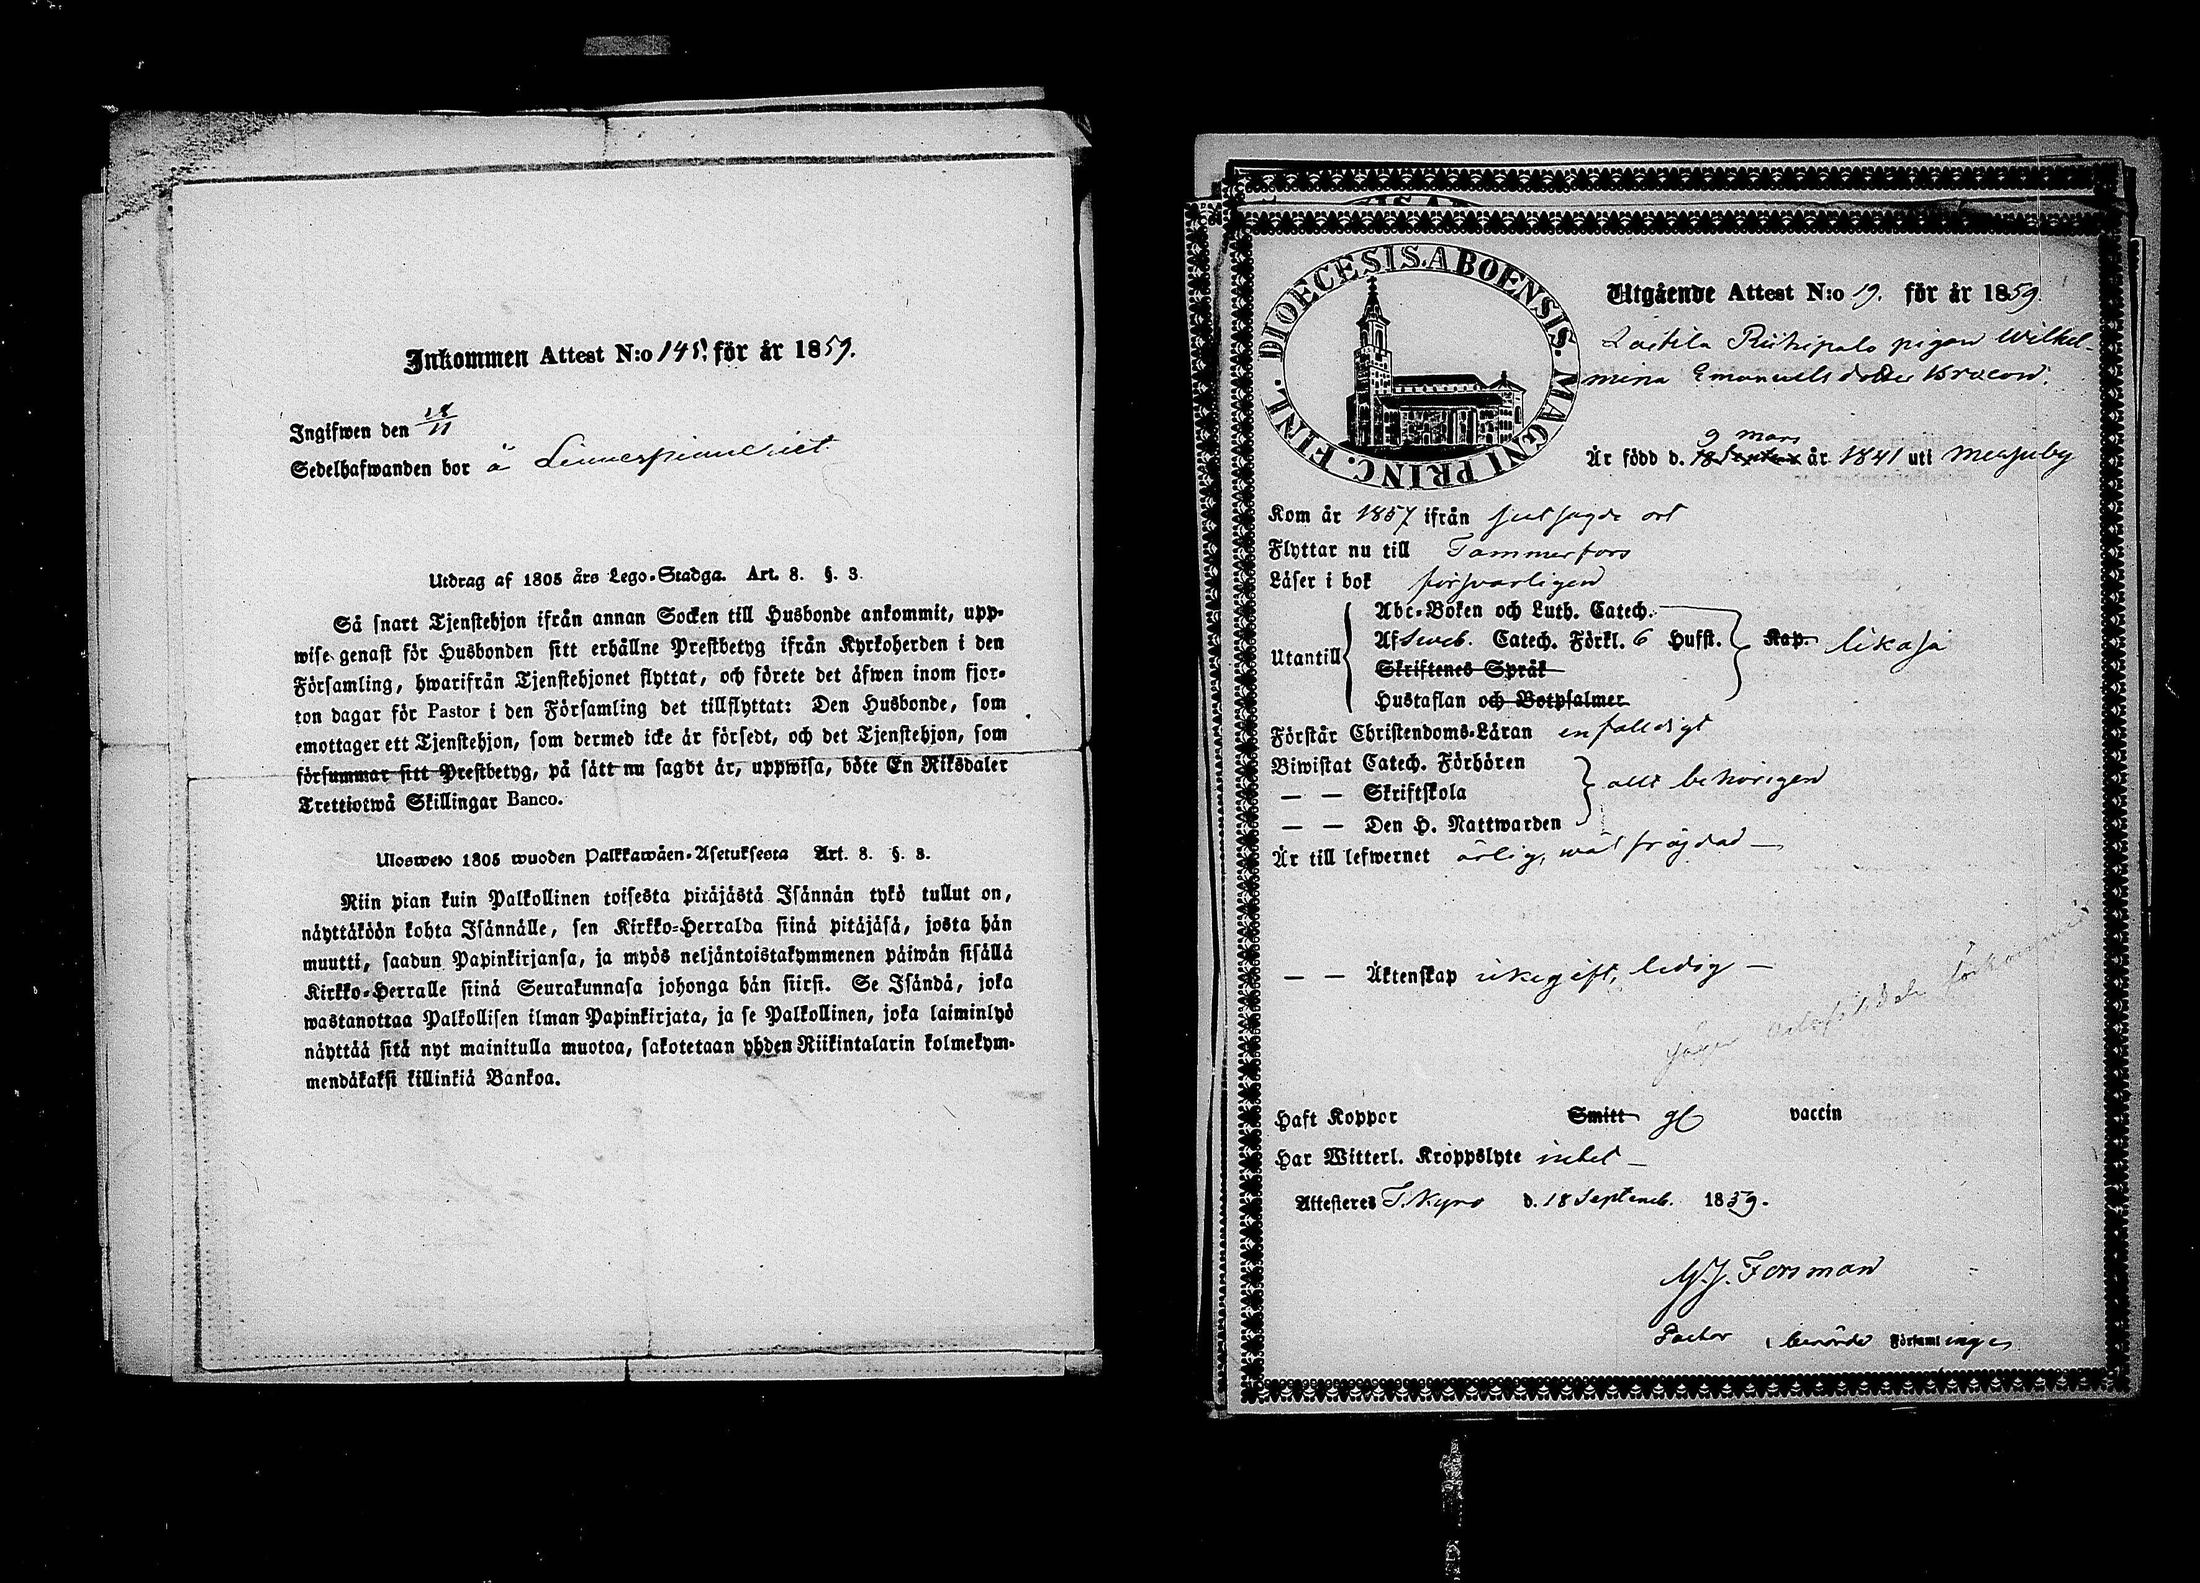 Inkommen Attest N:o 145. för år 1859.
Ingifwen den 18/11
Sedelhafwanden bor å Linnespinneriet
Utdrag af 1805 års Lego-Stadga. Art. 8. §. 3.
Så snart Tjenstehjon ifrån annan Socken till Husbonde ankommit, upp-
wise genast för Husbonden sitt erhållne Prestbetyg ifrån Kyrkoherden i den
Församling, hwarifrån Tjenstehjonet flyttat, och förete det äfwen inom fjor-
ton dagar för Pastor i den Församling det tillflyttat: Den Husbonde, som
emottager ett Tjenstehjon, som dermed icke är försedt, och det Tjenstehjon, som
försummar sitt Prestbetyg, på sätt nu sagdt är, uppwisa, böte En Riksdaler
Trettiotwå Skillingar Banco.
Ulosweto 1805 wuoden Palkkawäen-Asetuksesta Art. 8. §. 3.
Niin pian kuin Palkollinen toisesta pitäjästä Isännän tykö tullut on,
näyttäköön kohta Isännälle, sen Kirkko-Herralda siinä pitäjäsä, josta hän
muutti, saadun Papinkirjansa, ja myös neljäntoistakymmenen päiwän sisällä
Kirkko-Herralle siinä Seurakunnasa johonga hän siirsi. Se Isändä, joka
wastanottaa Palkollisen ilman Papinkirjata, ja se Palkollinen, joka laiminlyö
näyttää sitä nyt mainitulla muotoa, sakotetaan yhden Riikintalarin kolmekym-
mendäkaksi killinkiä Bankoa.
FINL. DIOECESIS. ABOENSIS. MAGNI PRINC.
Utgående Attest N:o 19. för år 1859.
Laitila Riihipalo pigan Wilhel-
mina Emanuels dotter
9 mars
Är född d. 18 Septemb år 1841 uti
Kom år 1857 ifrån sistsagde ort
Flyttar nu till Tammerfors
Läser i bok försvarligen
Abc-Boken och Luth. Catech.
Utantill Af Sweb. Catech. Förkl. 6 Hufst. Kap. likaså
Skriftenes Språk
Hustaflan och Botpsalmer
Förstår Christendoms-Läran enfalldigt
Biwistat Catech. Förhören
— — Skriftskola allt behörigen
— — Den H. Nattwarden
Är till lefwernet ärlig, wäl frägdad —
— — Äktenskap ickegift, ledig —
Haft Koppor Smitt gl vaccin
Har Witterl. Kroppslyte intet —
Attesteres T. Kyro d. 18 Septemb. 1859.
M.J. Forsman
Pastor i berörde Församlinges